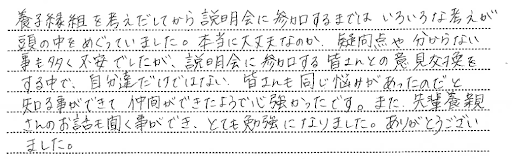 養子縁組を考えだしてから説明会に参加するまでは いろいろな考えが
頭の中をめぐっていました。本当に大丈夫なのか、疑問点や分からない
事も多く不安でしたが、説明会に参加する皆さんとの意見交換を
する中で、自分達だけではない、皆さんも同じ悩みがあったのだと
知る事ができて 仲間ができたようで心強かったです。また、先輩養親
さんのお話も聞く事ができ、とても勉強になりました。ありがとうござい
ました。